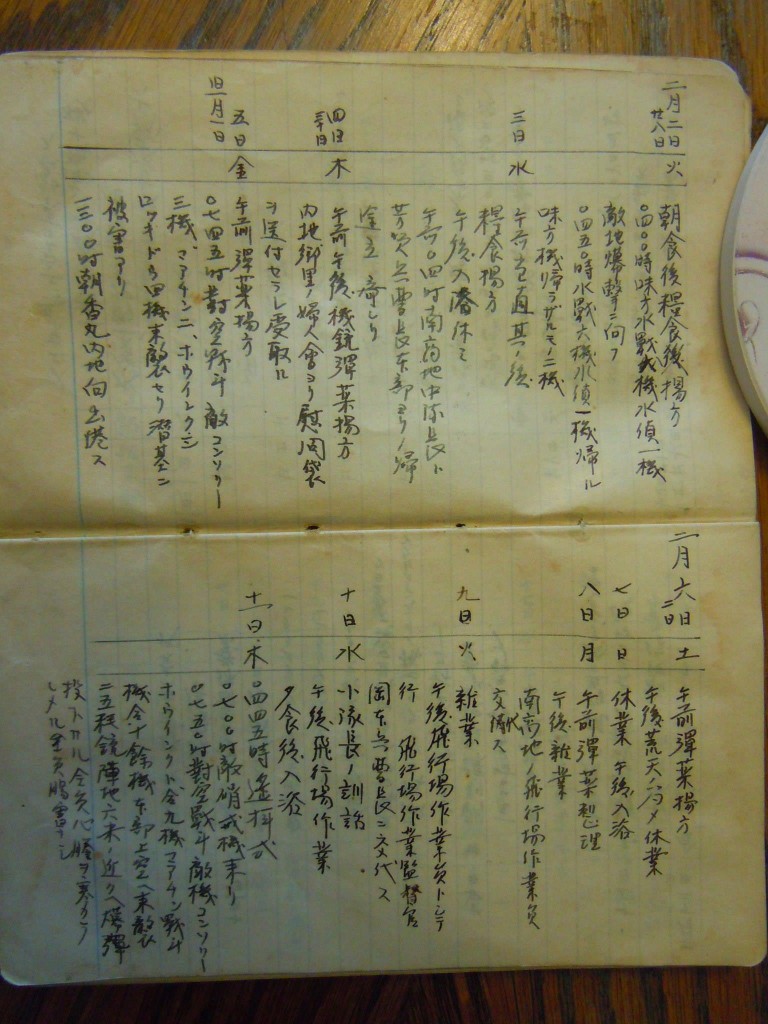 二月二日 火
廿八日
朝食後糧食後揚方
〇四〇〇時味方水戦弐機水偵一機
敵地爆撃ニ向フ
〇四五〇時水戦六機水偵一機帰ル
味方機帰ラザルモノ二機
三日 水
午前当直其ノ後
糧食揚方
午後入浴休ミ
午前〇四时南高地中隊長ト
兵曹長本部ヨリノ帰
途立寄レリ
四日 木
三十日
午前午後機銃弾薬揚方
内地郷里ノ婦人會ヨリ慰問袋
ヲ送付セラレ受取ル
五日 金
旧一月一日
午前弾薬揚方
〇七四五时對空戦斗敵コンソリー
三機、マアチン二、ホウイレクシ
ロツキード四機来襲セリ
被害アリ
一三〇〇时朝香丸内地向出港ス
二月六日 土
二日
午前弾薬揚方
午後荒天ノ為メ休業
七日 日
休業 午後入浴
八日 月
午前弾薬整理
午後雑業
南高地ノ飛行場作業員
交代ス
九日 火
雑業
午後飛行場作業員トシテ
行 飛行場作業監督官
岡本兵曹長ニ交代ス
十日 水
小隊長ノ訓話
午後飛行場作業
夕食後入浴
十一日 木
〇四四五時遙拝式
〇七〇〇时敵哨戒機来リ
〇七五〇时對空戦斗敵機コンソリー
ホウインクト合九機マアチン戦斗
機合十余機本部上空ヘ来襲
二五粍銃陣地六米ノ近クヘ爆弾
投下カル全員心膽ヲ寒カラ
シメル全員障害ナシ